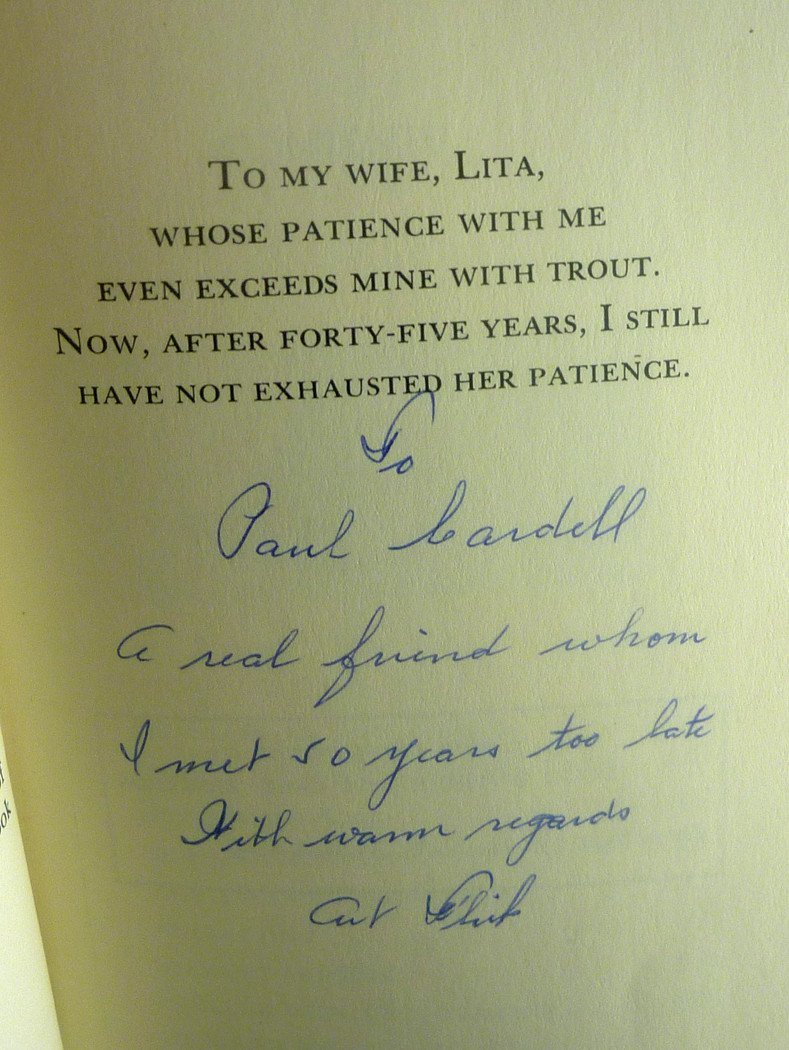 TO MY WIFE, LITA,
WHOSE PATIENCE WITH ME
EVEN EXCEEDS MINE WITH TROUT.
NOW, AFTER FORTY-FIVE YEARS, I STILL
HAVE NOT EXHAUSTED HER PATIENCE.
To
Paul Cardell
A real friend whom
I met 50 years too late
With warm regards
Art Flick